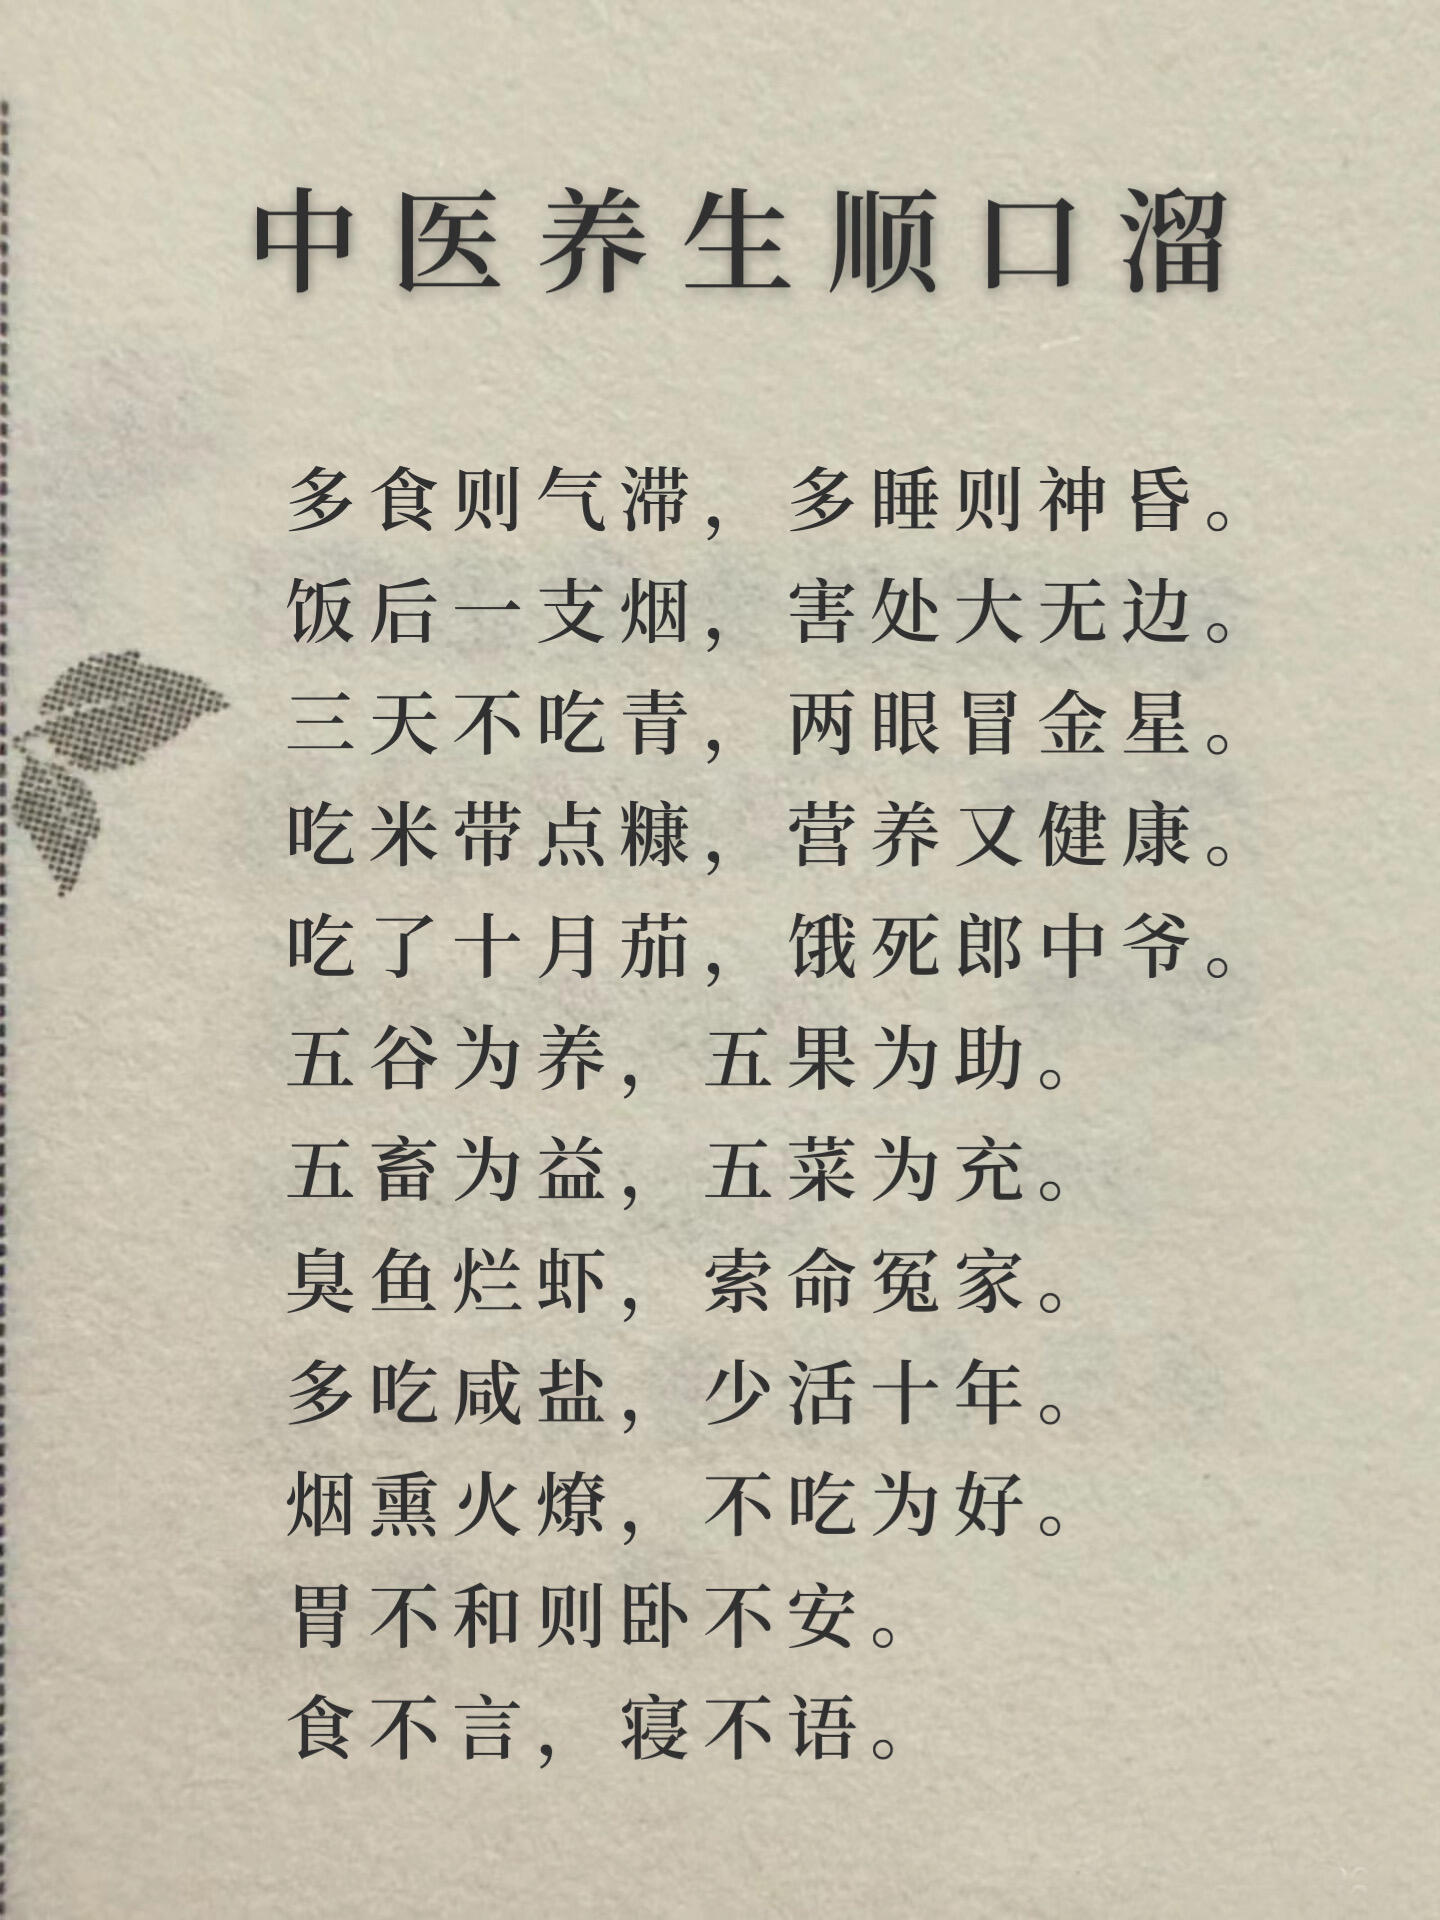 中医养生顺口溜
多食则气滞，多睡则神昏。
饭后一支烟，害处大无边。
三天不吃青，两眼冒金星。
吃米带点糠，营养又健康。
吃了十月茄，饿死郎中爷。
五谷为养，五果为助。
五畜为益，五菜为充。
臭鱼烂虾，索命冤家。
多吃咸盐，少活十年。
烟熏火燎，不吃为好。
胃不和则卧不安。
食不言，寝不语。